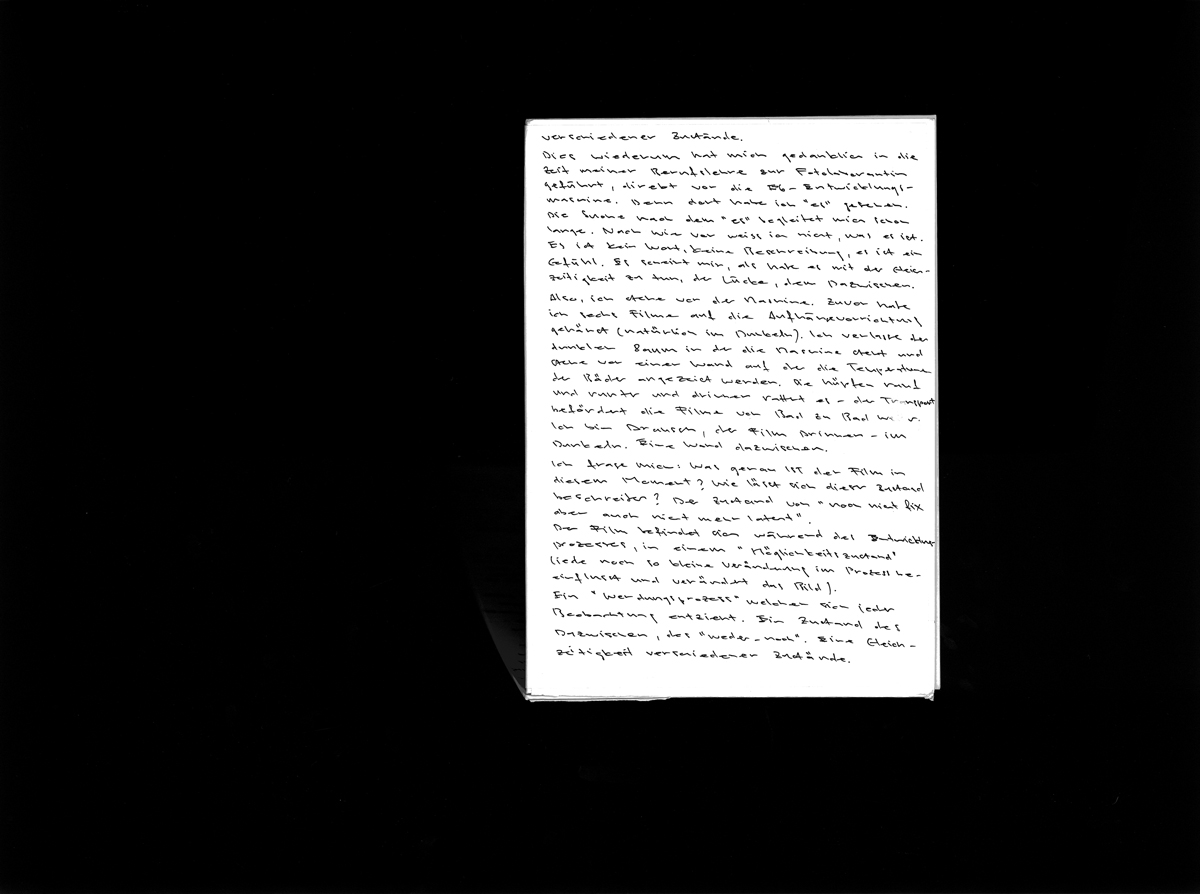 verschiedener Zustände.
Dies wiederum hat mich gedanklich in die
Zeit meiner Berufslehre zur Fotolaborantin
geführt, direkt vor die E6-Entwicklungs-
maschine. Denn dort habe ich "es" gesehen.
Die Suche nach dem "es" begleitet mich schon
lange. Nach wie vor weiss ich nicht, was es ist.
Es ist kein Wort, keine Beschreibung, es ist ein
Gefühl. Es scheint mir, als habe es mit der Gleich-
zeitigkeit zu tun, der Lücke, dem Dazwischen.
Also, ich stehe vor der Maschine. Zuvor habe
ich sechs Filme auf die Aufhängevorrichtung
gehängt (natürlich im Dunkeln). Ich verlasse den
dunklen Raum in der die Maschine steht und
stehe vor einer Wand auf der die Temperaturen
der Bäder angezeigt werden. Sie hüpfen rauf
und runter und drinnen rattert es - der Transport
befördert die Filme von Bad zu Bad
Ich bin Draussen, der Film Drinnen - im
Dunkeln. Eine Wand dazwischen.
Ich frage mich: Was genau IST der Film in
diesem Moment? Wie lässt sich dieser Zustand
beschreiben? Der Zustand von "noch nicht fix
aber auch nicht mehr latent".
Der Film befindet sich während des Entwicklungs-
prozesses, in einem "Möglichkeitszustand"
(jede noch so kleine Veränderung im Prozess be-
einflusst und verändert das Bild).
Ein "Werdungsprozess" welcher sich jeder
Beobachtung entzieht. Ein Zustand des
Dazwischen, des "weder-noch". Eine Gleich-
zeitigkeit verschiedener Zustände.